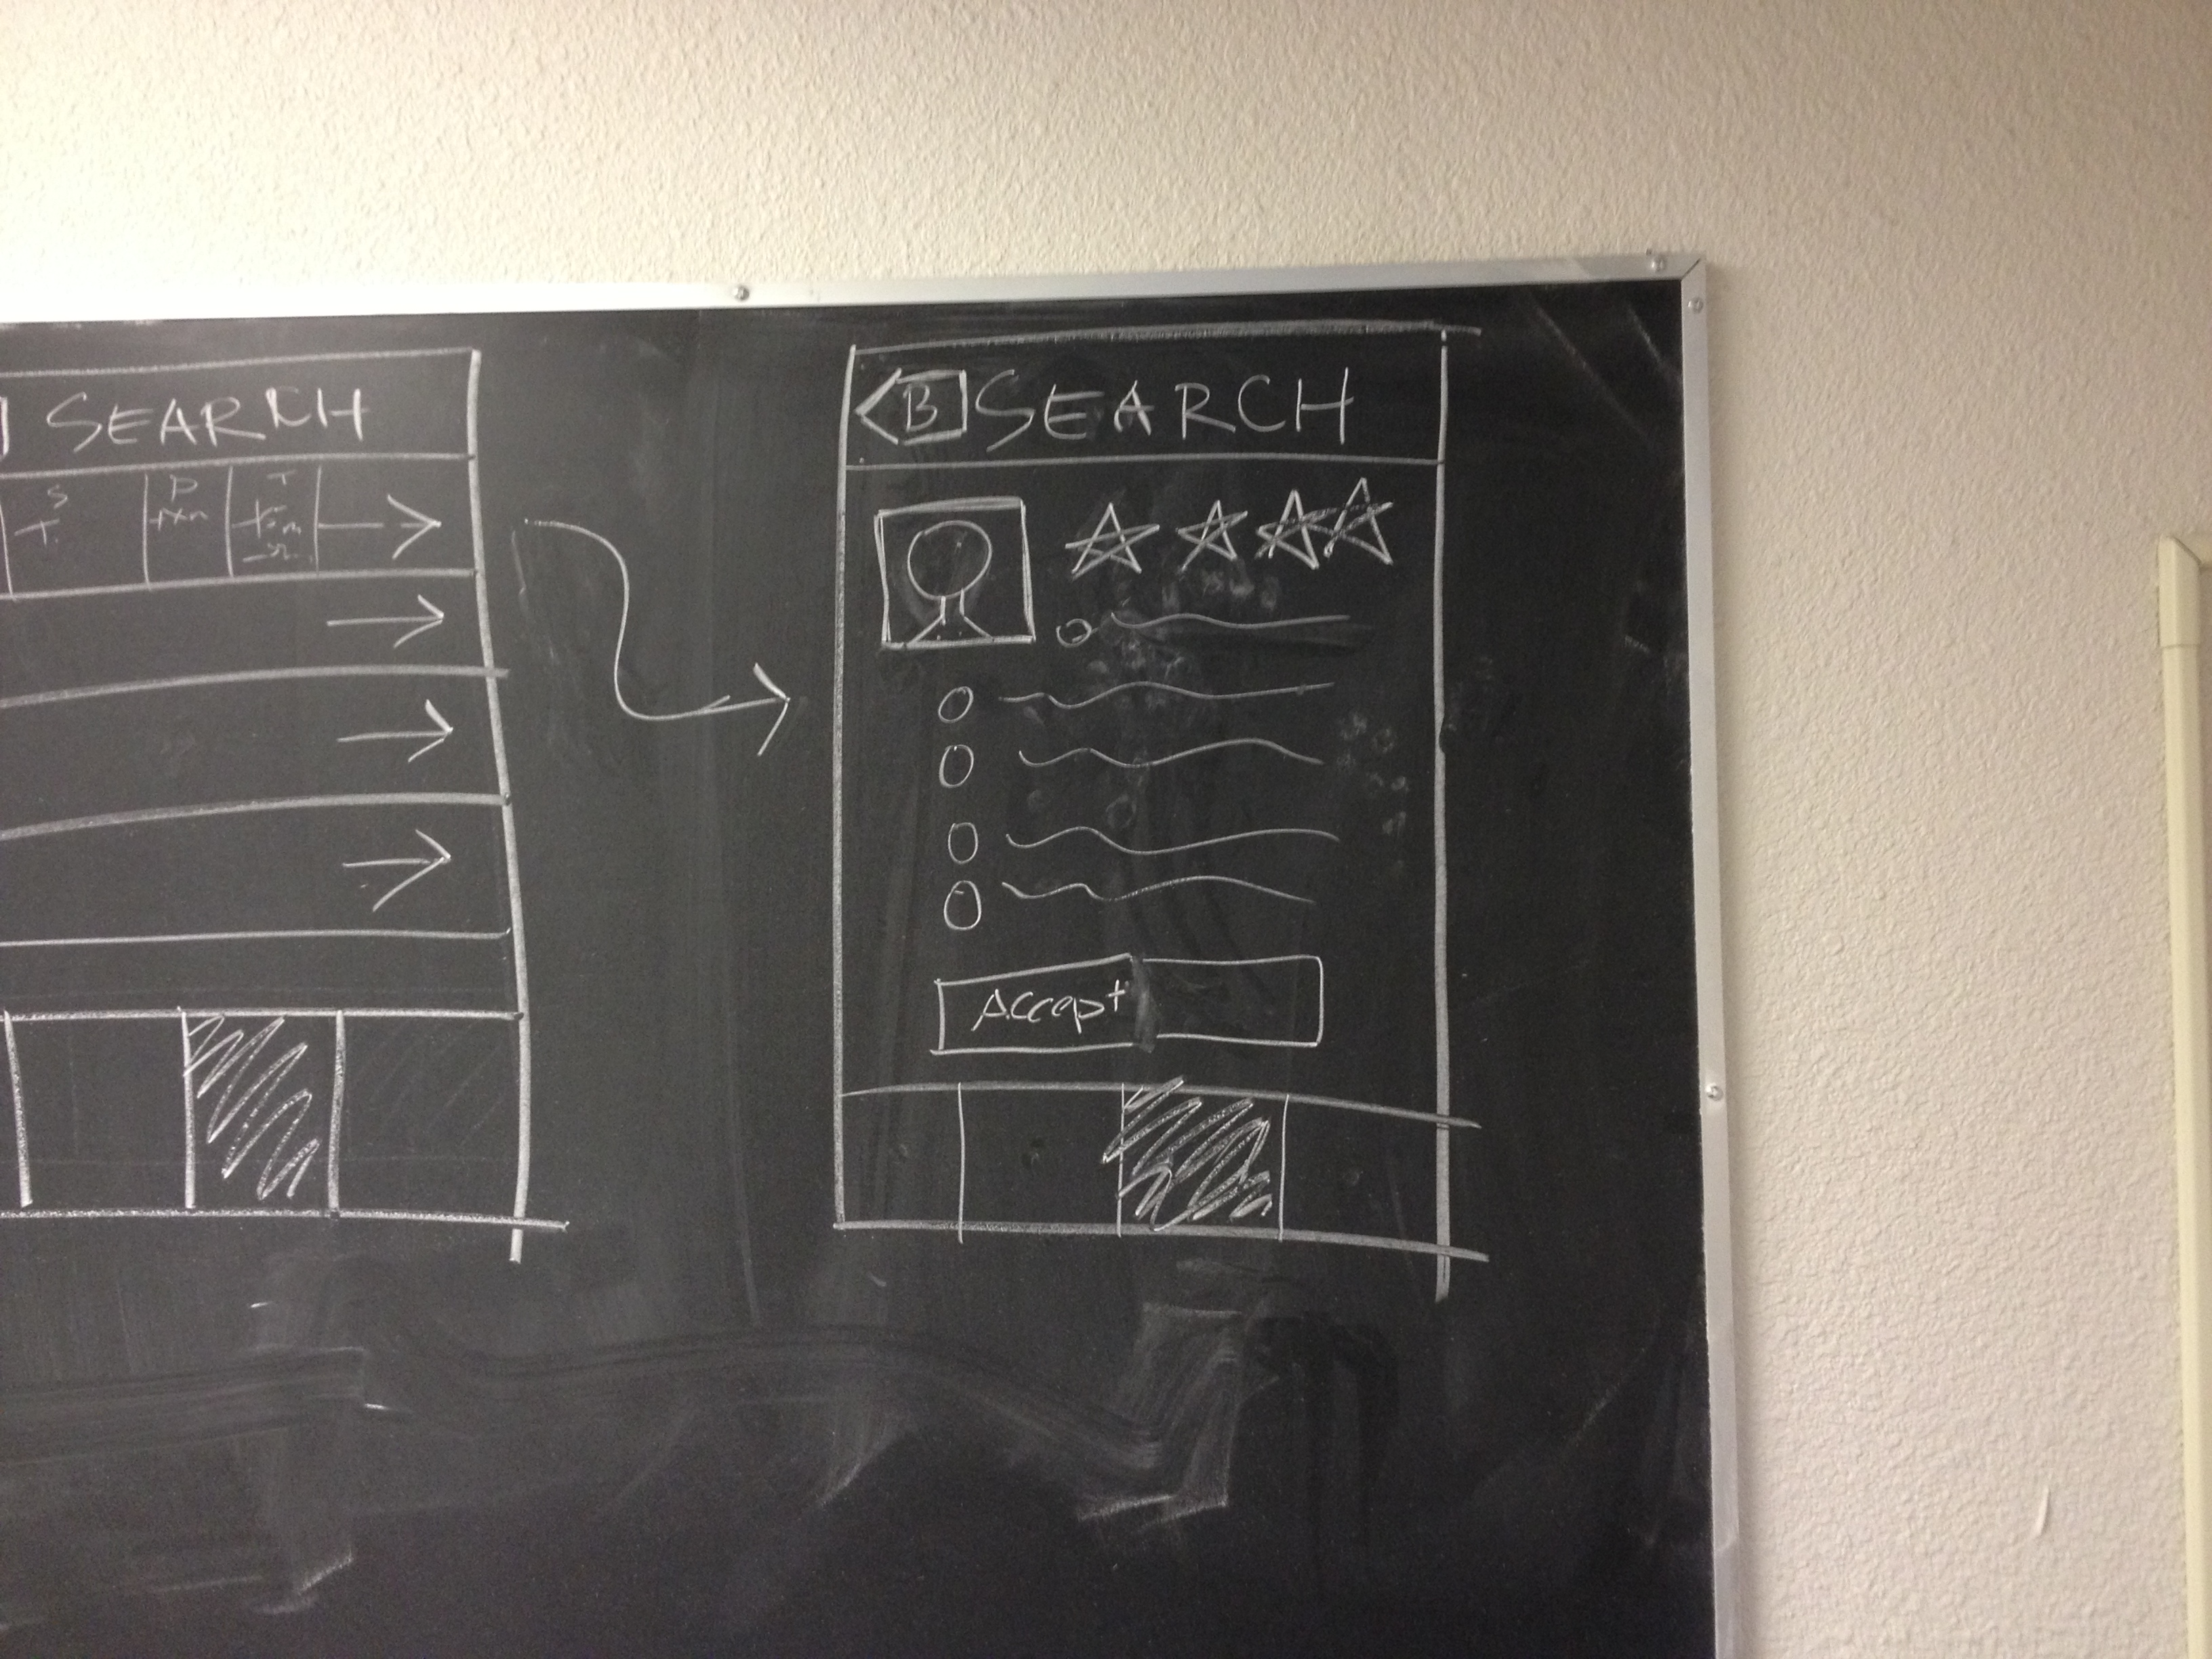 SEARCH
S P T
T.
B SEARCH
Accept